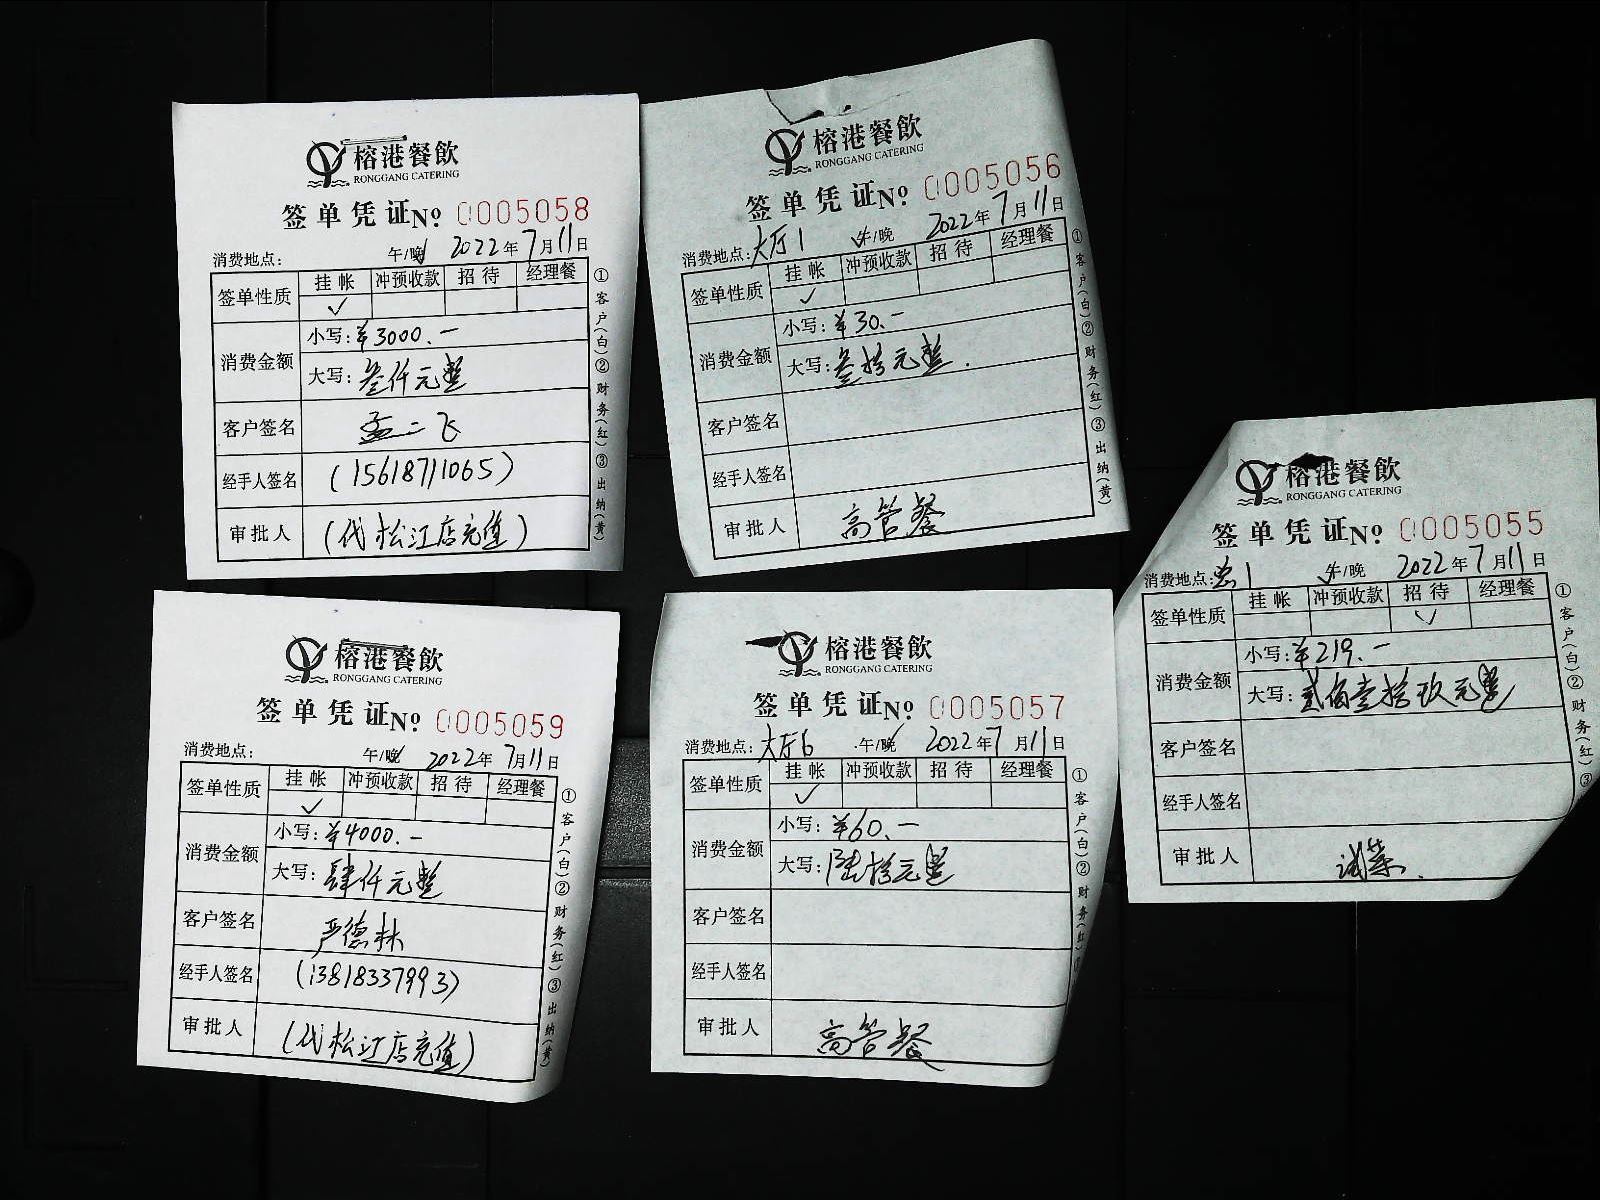 榕港餐飲
RONGGANG CATERING
签单凭证No 0005058
消费地点: 午/晚 2022年7月11日
签单性质 挂帐 冲预收款 招待 经理餐
✓
消费金额 小写:¥3000.一
大写:叁仟元整
客户签名 孟二飞
经手人签名 (15618711065)
审批人 (代松江店充值)
①客户(白)②财务(红)③出纳(黄)
榕港餐飲
RONGGANG CATERING
签单凭证No 0005056
消费地点:大厅1 午/晚 2022年7月11日
签单性质 挂帐 冲预收款 招待 经理餐
✓
消费金额 小写:¥30.一
大写:叁拾元整.
客户签名
经手人签名
审批人 高管餐
①客户(白)②财务(红)③出纳(黄)
榕港餐飲
RONGGANG CATERING
签单凭证No 0005055
消费地点: 1 午/晚 2022年7月11日
签单性质 挂帐 冲预收款 招待 经理餐
✓
消费金额 小写:¥219.一
大写:贰佰壹拾玖元整
客户签名
经手人签名
审批人 试菜.
①客户(白)②财务(红)③
榕港餐飲
RONGGANG CATERING
签单凭证No 0005059
消费地点: 午/晚 2022年7月11日
签单性质 挂帐 冲预收款 招待 经理餐
✓
消费金额 小写:¥4000.一
大写:肆仟元整
客户签名 严德林
经手人签名 (13818337993)
审批人 (代松江店充值)
①客户(白)②财务(红)③出纳(黄)
榕港餐飲
RONGGANG CATERING
签单凭证No 0005057
消费地点:大厅6 午/晚 2022年7月11日
签单性质 挂帐 冲预收款 招待 经理餐
✓
消费金额 小写:¥60.一
大写:陆拾元整
客户签名
经手人签名
审批人 高管餐
①客户(白)②财务(红)